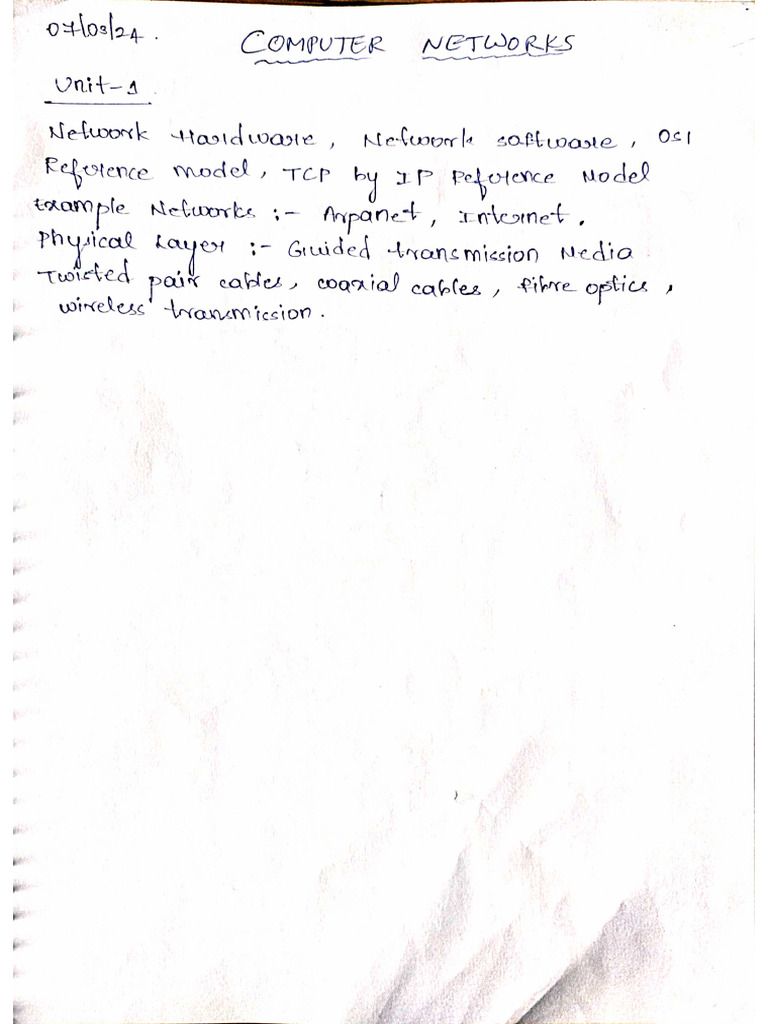 07/03/24.
COMPUTER NETWORKS
Unit-1
Network Hardware, Network software, OSI
Reference model, TCP by IP Reference Model
Example Networks :- Arpanet, Internet.
Physical Layer :- Guided transmission Media
Twisted pair cables, coaxial cables, fibre optics,
wireless transmission.